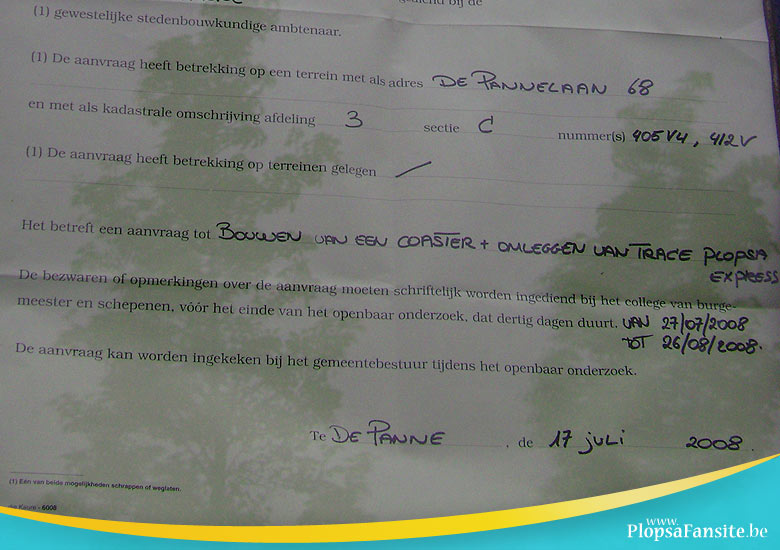 bij de
(1) gewestelijke stedenbouwkundige ambtenaar.
(1) De aanvraag heeft betrekking op een terrein met als adres DE PANNELAAN 68
en met als kadastrale omschrijving afdeling 3 sectie C nummer(s) 405V4, 412V
(1) De aanvraag heeft betrekking op terreinen gelegen /
Het betreft een aanvraag tot BOUWEN VAN EEN COASTER + OMLEGGEN VAN TRACE PLOPSA
EXPRESS
De bezwaren of opmerkingen over de aanvraag moeten schriftelijk worden ingediend bij het college van burge-
meester en schepenen, vóór het einde van het openbaar onderzoek, dat dertig dagen duurt. VAN 27/07/2008
TOT 26/08/2008.
De aanvraag kan worden ingekeken bij het gemeentebestuur tijdens het openbaar onderzoek.
Te DE PANNE , de 17 juli 2008.
(1) Eén van beide mogelijkheden schrappen of weglaten.
die Keure - 6008
www.
PlopsaFansite.be